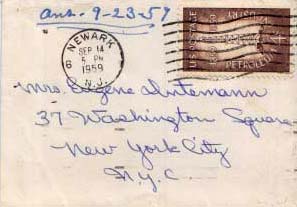 Ans. 9-23-59
NEWARK
SEP 14
5 PM
1959
N.J.
6
U.S. POSTAGE
PETROLEUM INDUSTRY
Mrs. Eugene Untemann
37 Washington Square
New York City
N.Y.C.